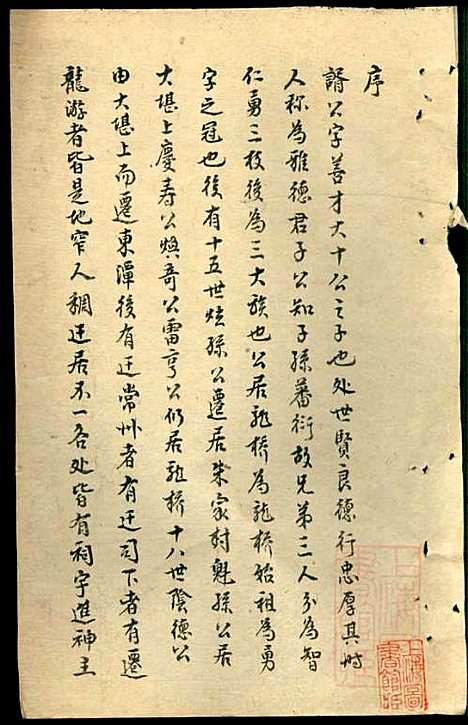 序
諝公字善才大十公之子也处世賢良德行忠厚其時
人称為雅德君子公知子孫蕃衍故兄弟三人分為智
仁勇三枝後為三大族也公居龍橋為龍橋始祖為勇
字之冠也後有十五世炫孫公遷居朱家村魁孫公居
大堪上慶寿公煥奇公雷亨公仍居龍橋十八世陰德公
由大堪上而遷東潭後有迁常州者有迁司下者有遷
龍游者皆是地窄人稠迁居不一各处皆有祠宇進神主
上海圖書館藏